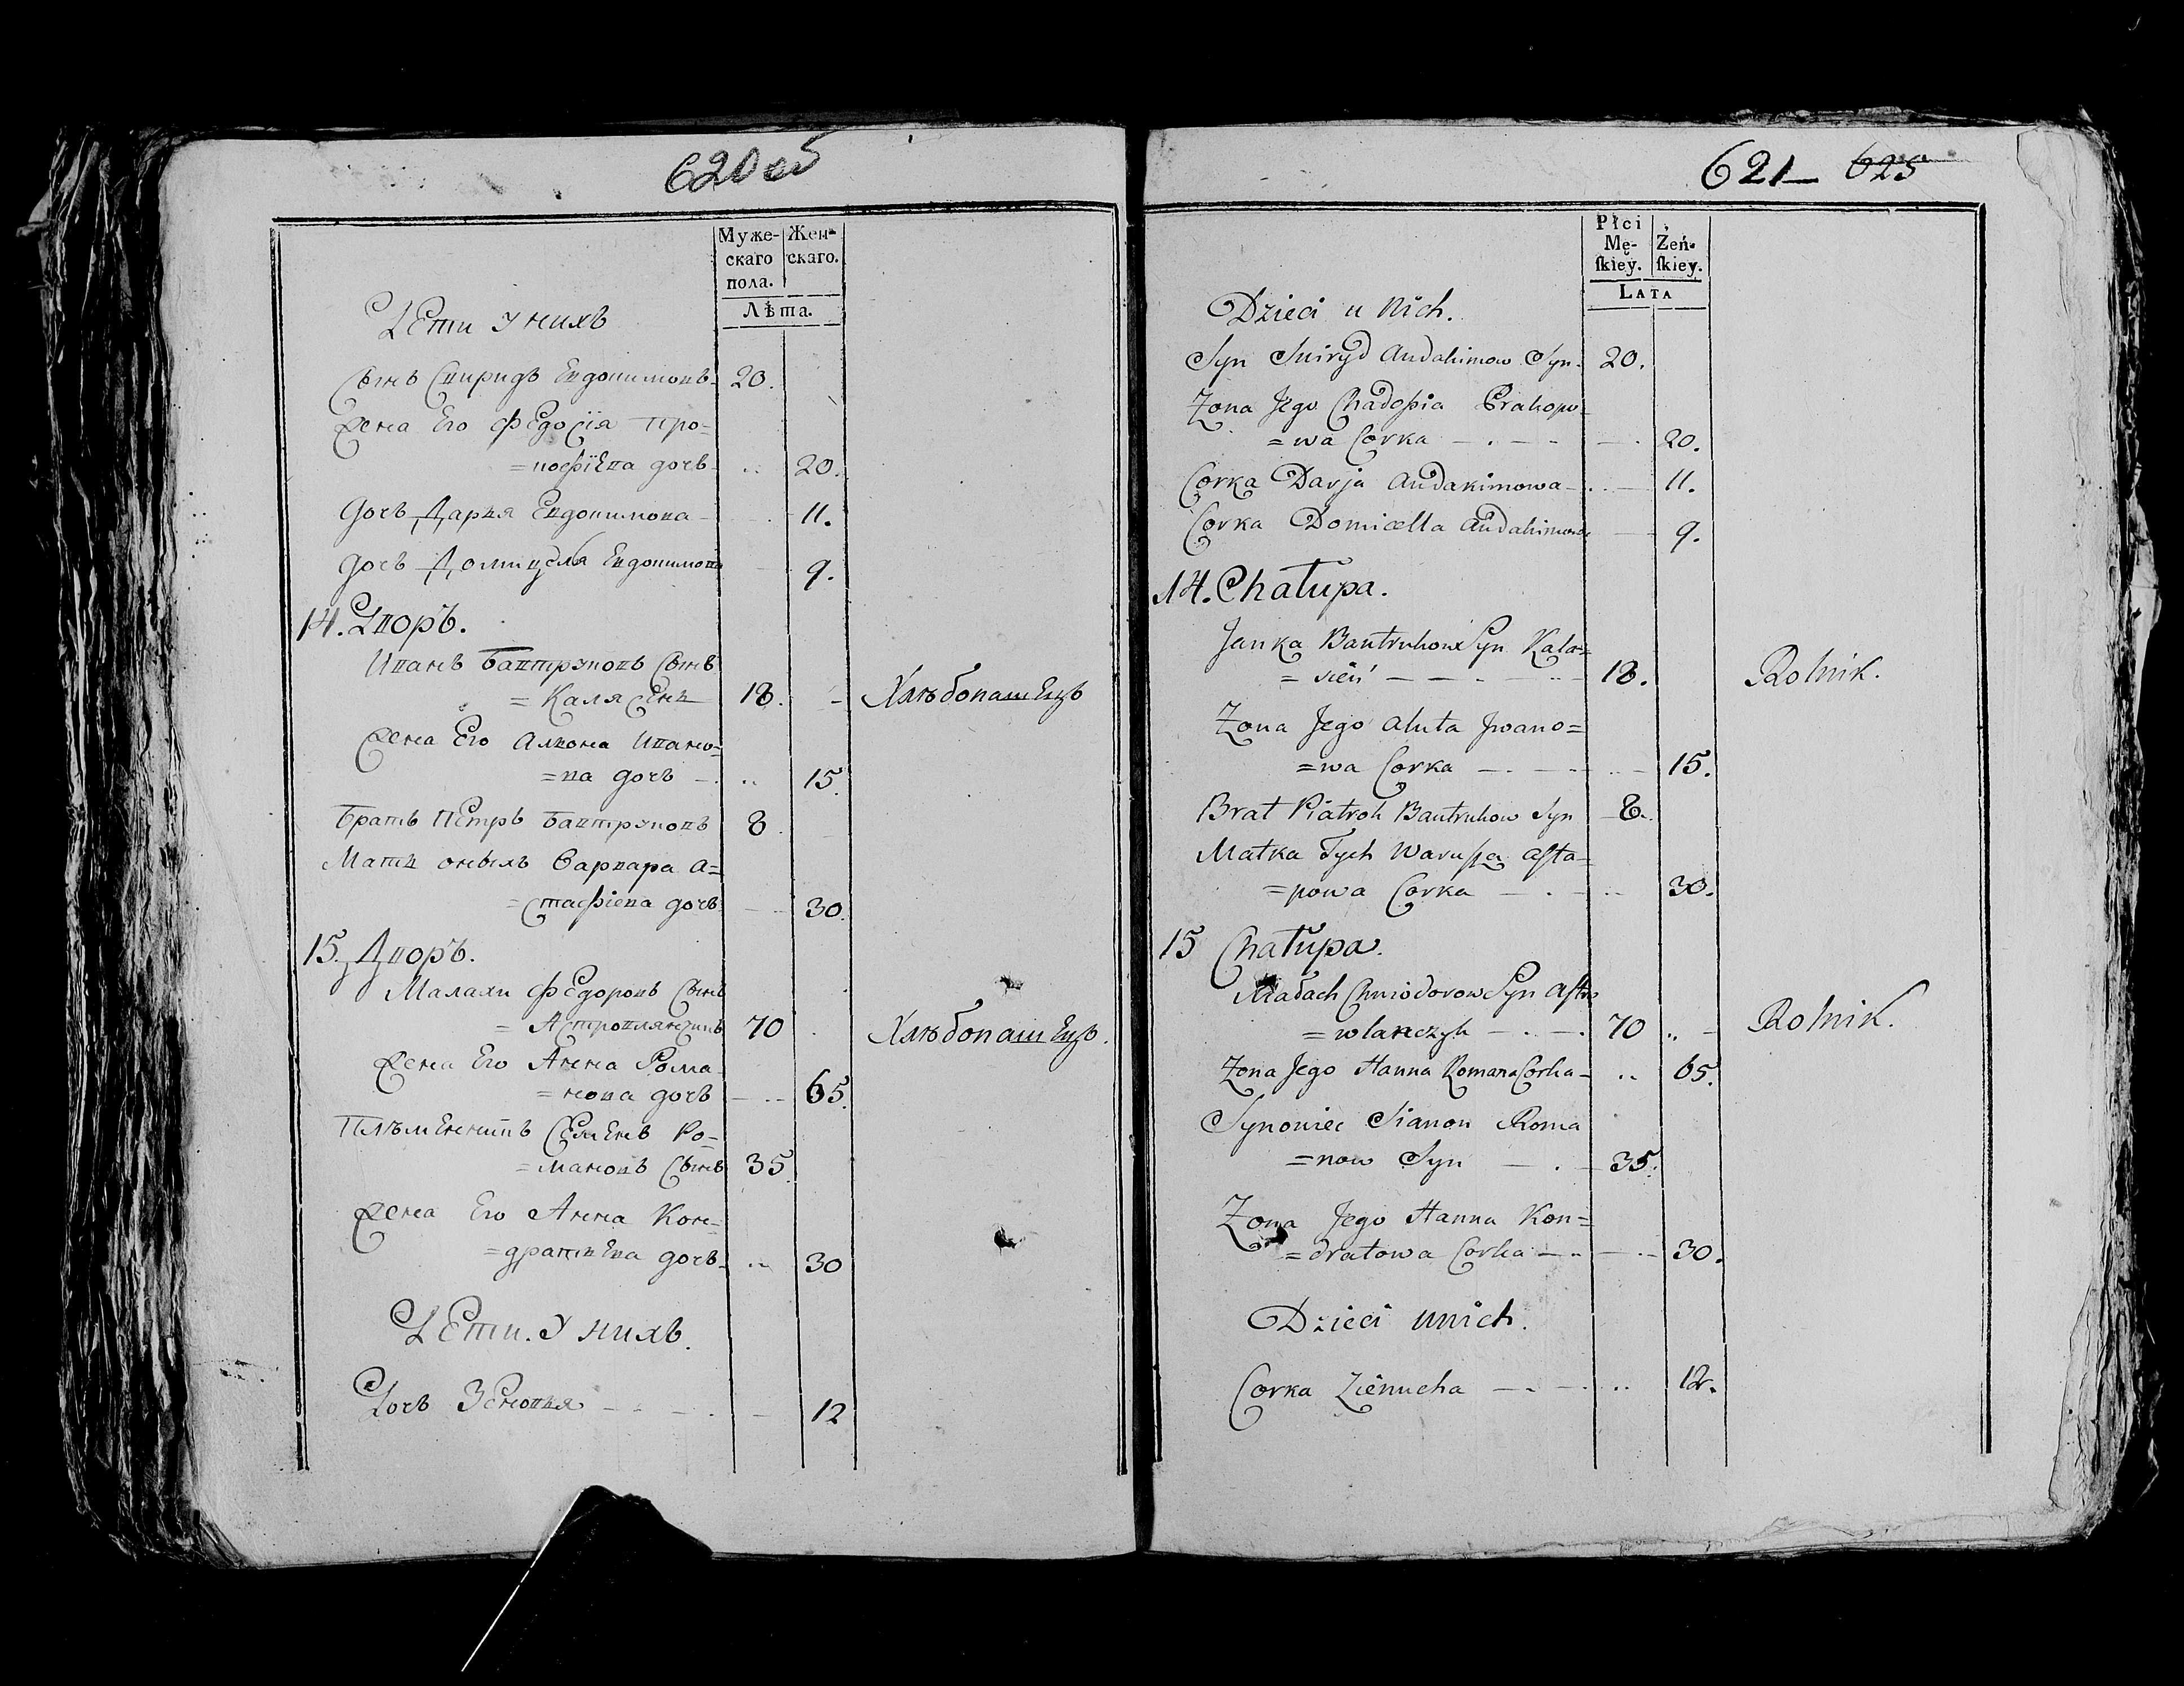 620 об
Муже-
скаго
пола.
Жен-
скаго.
Лѣта.
Дети У нихъ
Сынъ Спиридъ Евдокимовъ 20.
Жена Его Федосія Про-
=кофіева дочь .. 20.
Дочь Дарья Евдокимова 11.
дочь Домицеля Евдокимова 9.
14. Дворъ.
Иванъ Бавтруковъ Сынъ
= Калясень 18. Хлѣбопашецъ
Жена Его Алжона Ивано-
=ва дочь .. 15.
Братъ Петръ Бавтруковъ 8
Мать оныхъ Варвара А=
=стафіева дочь 30.
15. Дворъ.
Малахи Федоровъ Сынъ
= Астровлянчикъ 70 Хлѣбопашецъ.
Жена Его Анна Рома
=нова дочь 65.
Племенникъ Семенъ Ро-
=мановъ Сынъ 35.
Жена Его Анна Кон=
=дратьева дочь .. 30
Дети. У нихъ.
Дочь Зеновья 12
621 625
Płci
Mę-
skiey.
Żeń-
skiey.
LATA
Dzieci u Nich.
Syn Swiryd Audakimow Syn. 20.
Zona Jego Chadosia Prakopo=
=wa Corka 20.
Corka Darja Audakimowa 11.
Corka Domicella Audakimowa 9.
14. Chałupa.
Janka Bautrukow Syn Kala=
= sień 18. Rolnik.
Zona Jego Aluta Jwano=
=wa Corka 15.
Brat Piatrok Bautrukow Syn 8.
Matka Tych Warusza Asta=
=powa Corka 30.
15 Chałupa.
Małach Chwiodorow Syn Astro
=wlanczyk 70 Rolnik.
Zona Jego Hanna Romana Corka .. 65.
Synowiec Siamon Roma
=now Syn 35.
Zona Jego Hanna Kon=
=dratowa Corka 30.
Dzieci unich.
Corka Zienucha .. 12.